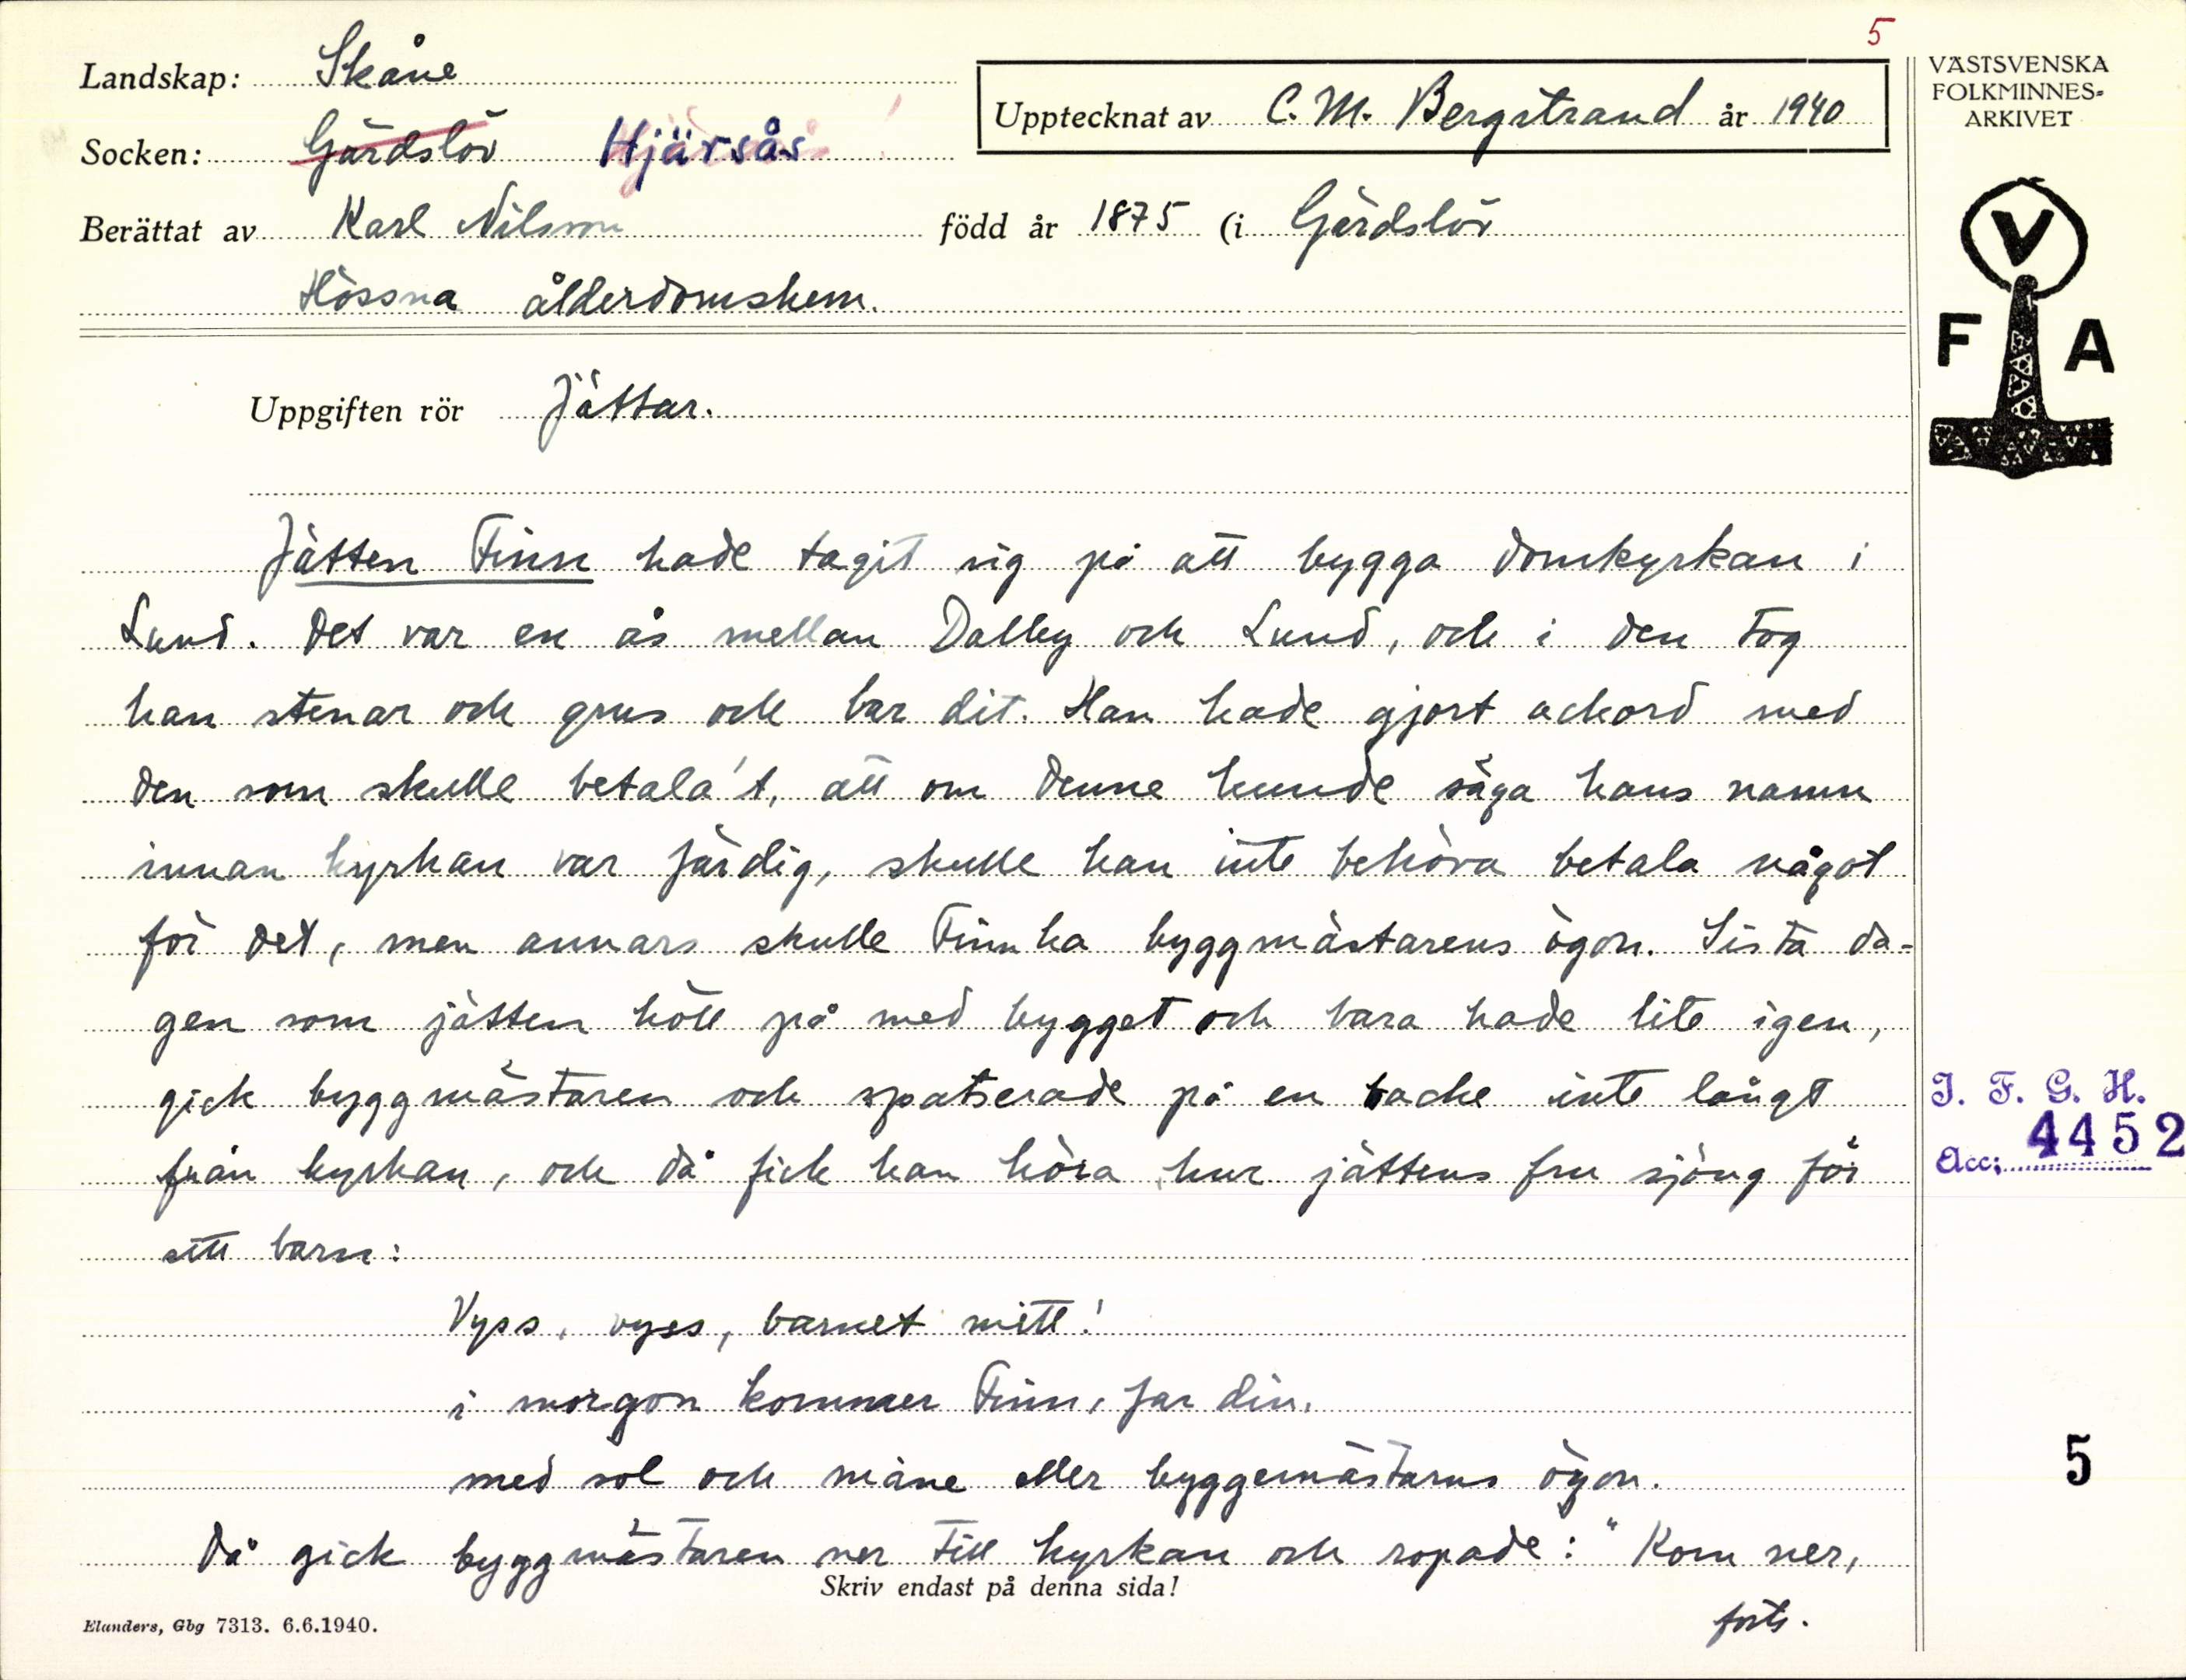 5
Landskap: Skåne
Upptecknat av C. M. Bergstrand år 1940
VÄSTSVENSKA
FOLKMINNES=
ARKIVET
Socken: Gärdslöv Hjärsås
Berättat av Karl Nilsson född år 1875 (i Gärdslöv
Hössna ålderdomshem.
V
F A
Uppgiften rör Jättar.
Jätten Finn hade tagit sig på att bygga domkyrkan i
Lund. Det var en ås mellan Dalby och Lund, och i den tog
han stenar och grus och bar dit. Han hade gjort ackord med
den som skulle betala't, att om denne kunde säga hans namn
innan kyrkan var färdig, skulle han inte behöva betala något
för det, men annars skulle Finn ha byggmästarens ögon. Sista da-
gen som jätten höll på med bygget och bara hade lite igen,
gick byggmästaren och spatserade på en backe inte långt
från kyrkan, och då fick han höra hur jättens fru sjöng för
ett barn:
Vyss, vyss, barnet mitt!
i morgon kommer Finn, far din,
med sol och måne eller byggemästarns ögon.
Då gick byggmästaren ner till kyrkan och ropade: "Kom ner,
forts.
Skriv endast på denna sida!
Elanders, Gbg 7313. 6.6.1940.
I. F. G. H.
Acc: 4452
5